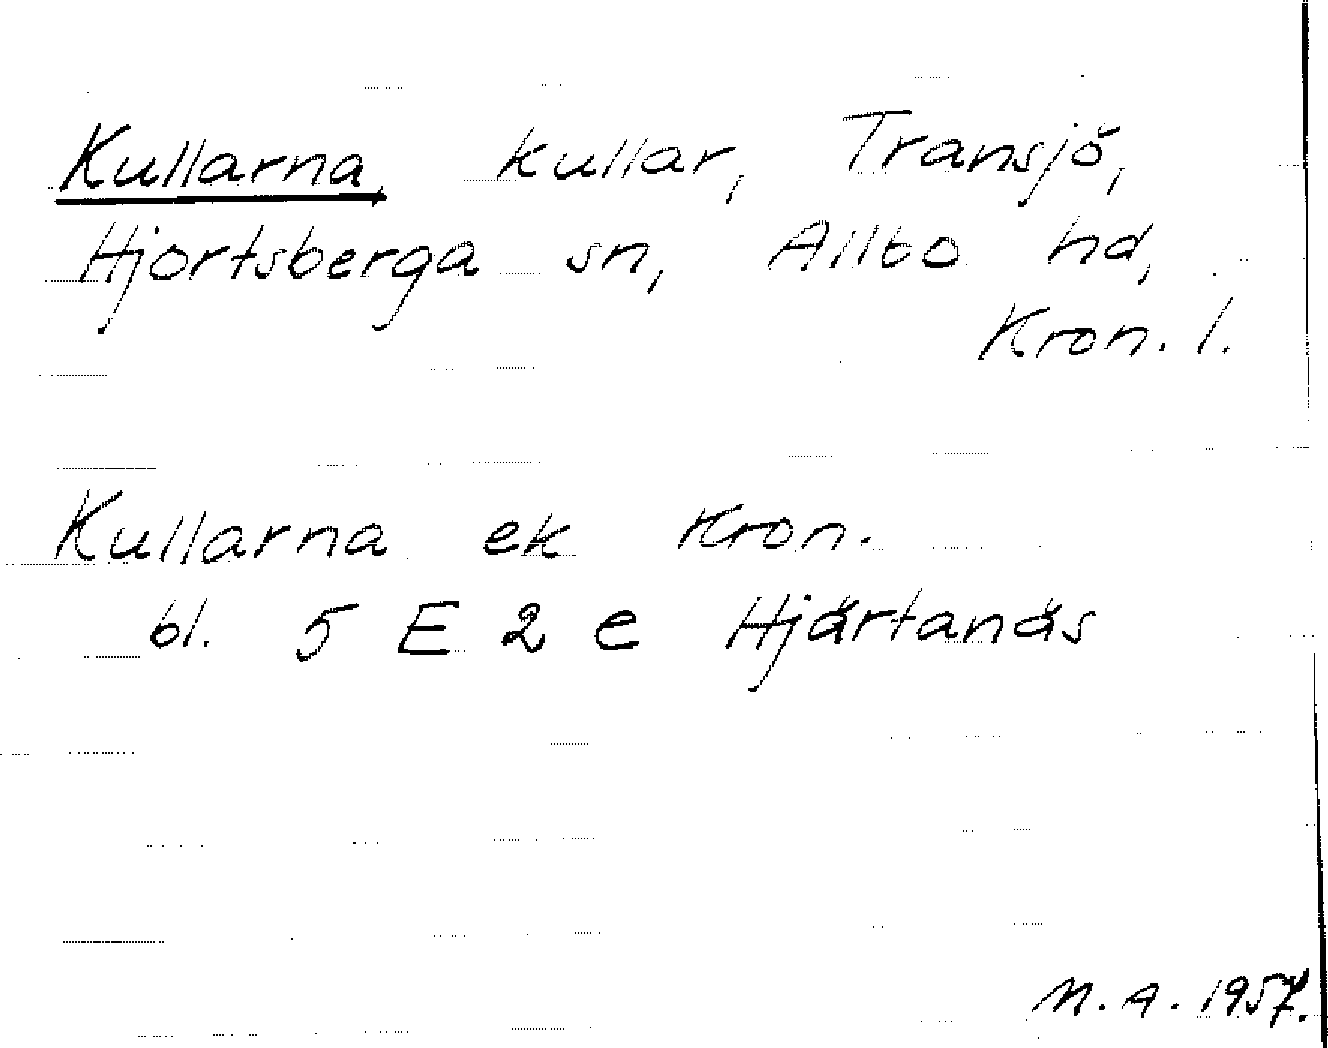 Kullarna, kullar, Transjö,
Hjortsberga sn, Allbo hd,
Kron. l.
Kullarna ek Kron.
bl. 5 E 2 e Hjärtanäs
M. A. 1957.